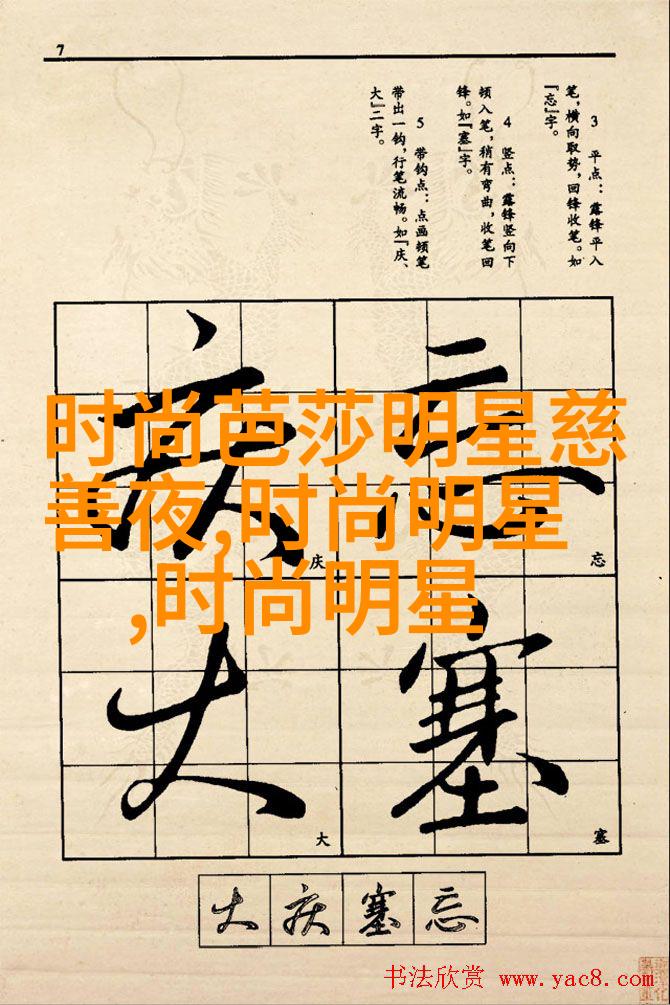 7
3 平点：露锋平入
笔，横向取势，回锋收笔。如
『忘』字。
4 竖点：露锋竖向下
顿入笔，稍有弯曲，收笔回
锋。如『塞』字。
5 带钩点：点画顿笔
带出一钩，行笔流畅。如『庆、
大』二字。
忘
塞
庆
大
时尚芭莎明星慈
善夜,时尚明星
,时尚明星
忘
塞
庆
大
大 庆 塞 忘
书法欣赏 www.yac8.com